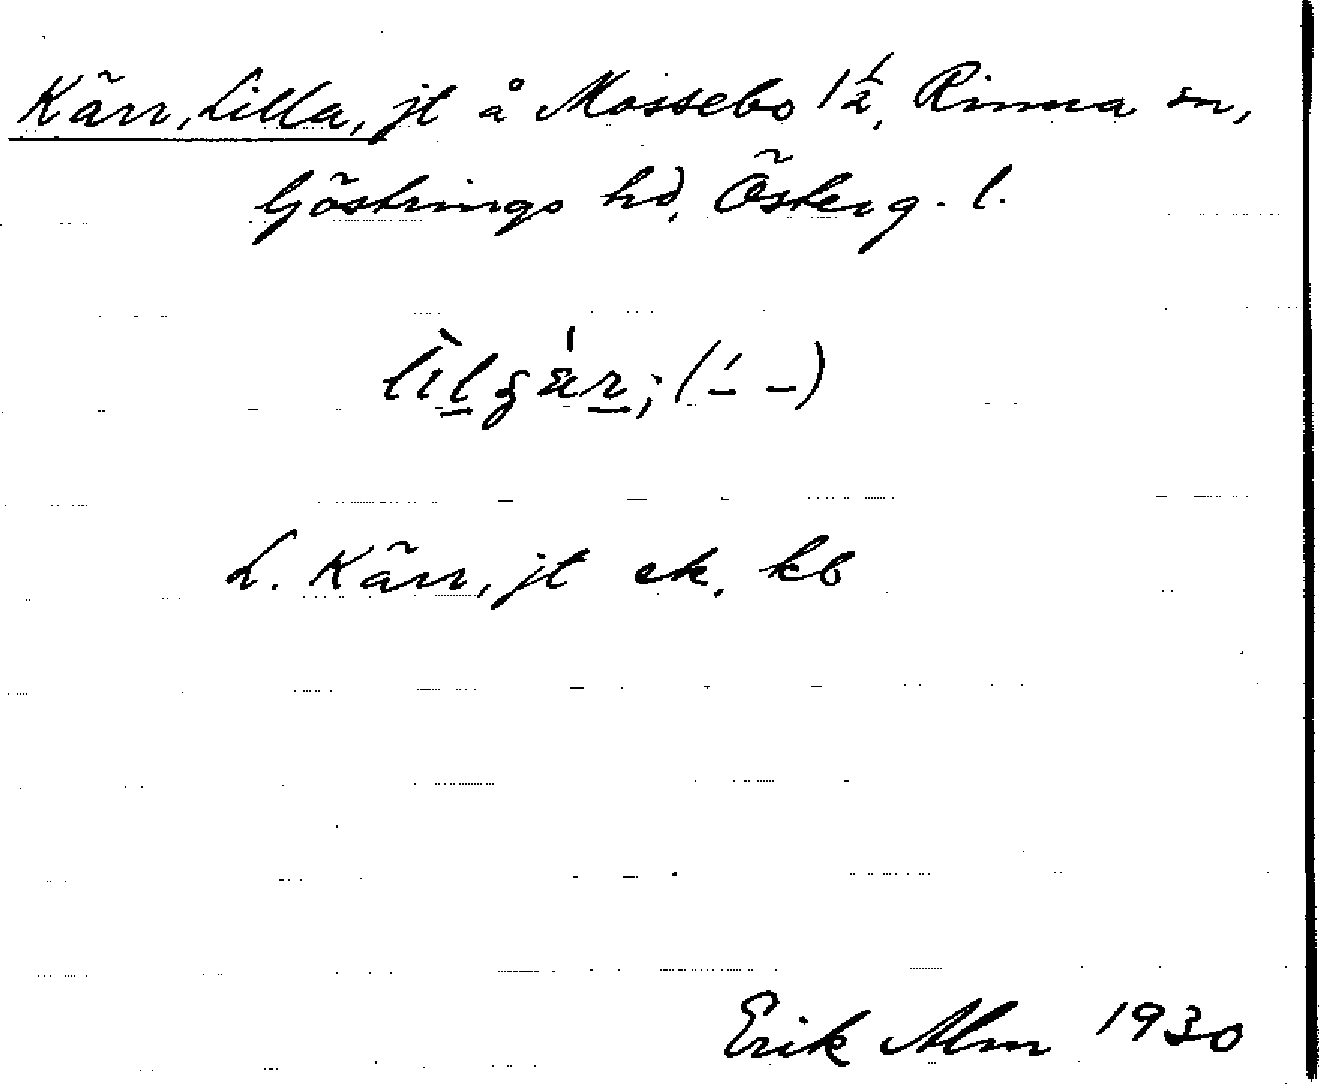 Kärr, Lilla, jt å Mossebo 1 1/2, Rinna sn,
Göstrings hd, Österg. l.
L. Kärr, jt ek. kb
Erik Alm 1930